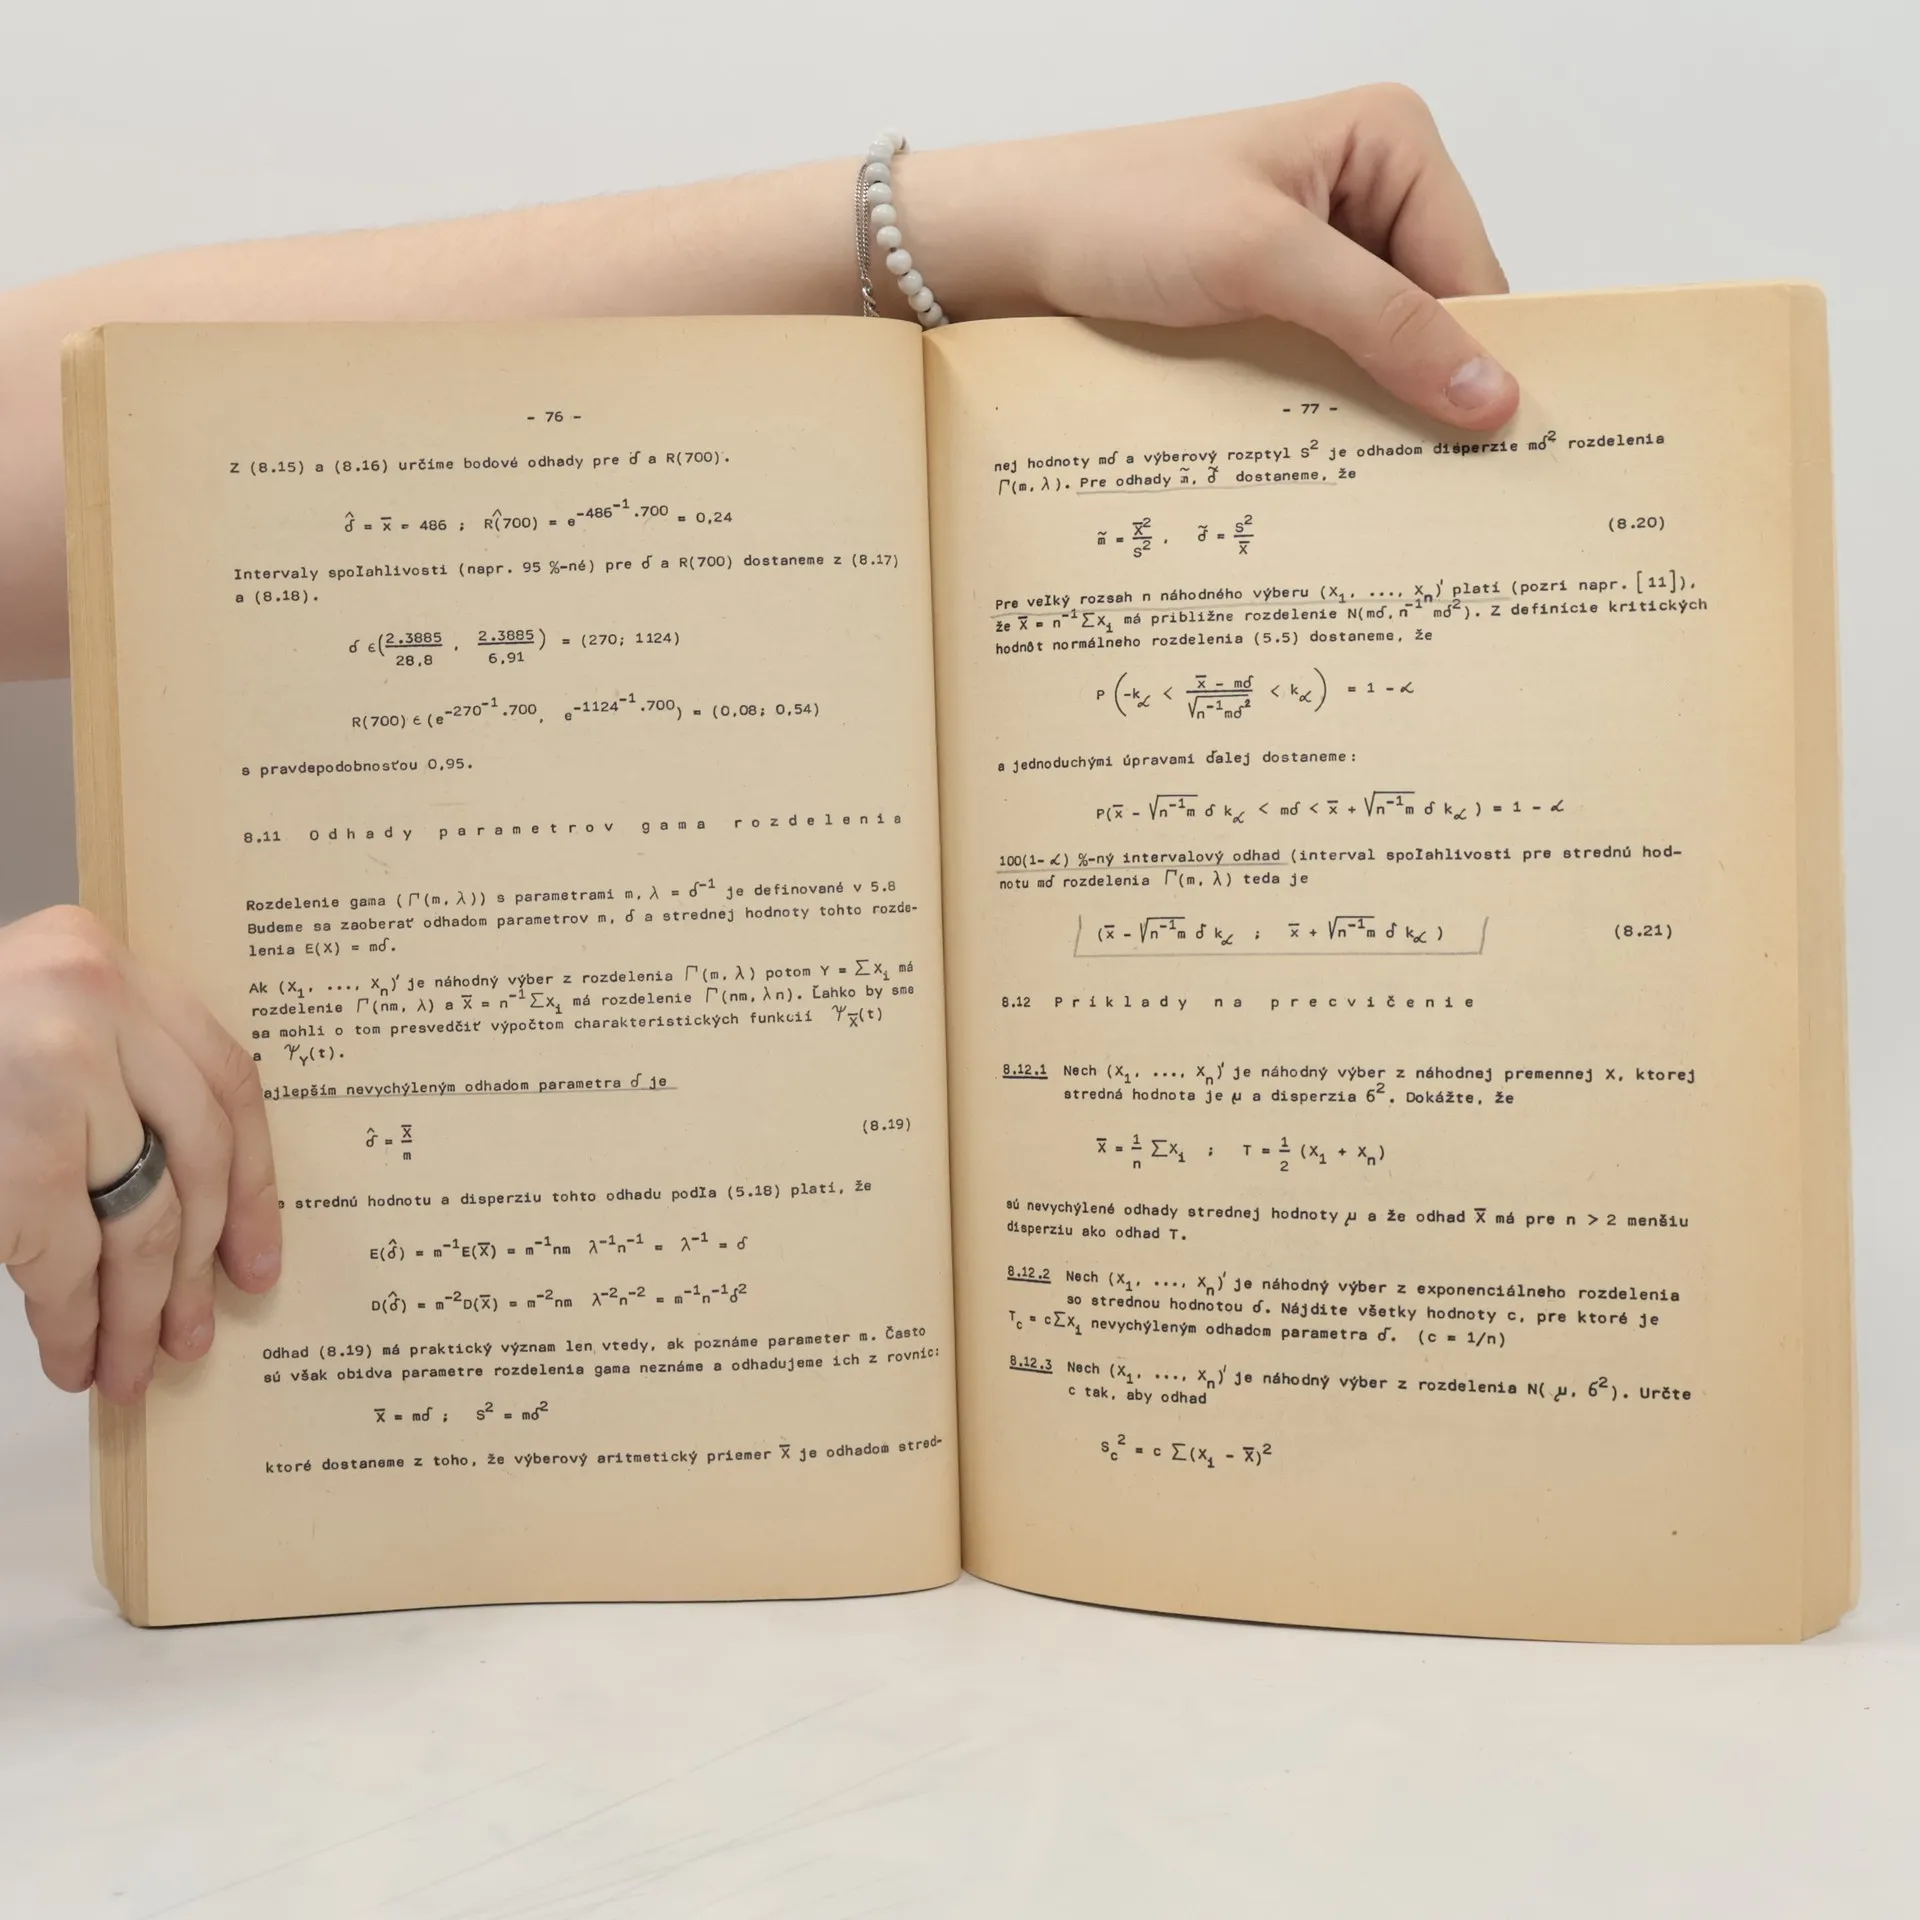 - 76 -
Z (8.15) a (8.16) určíme bodové odhady pre δ a R(700).
δ̂ = x̄ = 486 ; R̂(700) = e^-486^-1.700 = 0,24
Intervaly spoľahlivosti (napr. 95 %-né) pre δ a R(700) dostaneme z (8.17)
a (8.18).
δ ∈ (2.3885/28,8 , 2.3885/6,91) = (270; 1124)
R(700) ∈ (e^-270^-1.700, e^-1124^-1.700) = (0,08; 0,54)
s pravdepodobnosťou 0,95.
8.11 Odhady parametrov gama rozdelenia
Rozdelenie gama (Γ(m, λ)) s parametrami m, λ = δ^-1 je definované v 5.8
Budeme sa zaoberať odhadom parametrov m, δ a strednej hodnoty tohto rozde-
lenia E(X) = mδ.
Ak (X₁, ..., Xₙ)′ je náhodný výber z rozdelenia Γ(m, λ) potom Y = ∑Xᵢ má
rozdelenie Γ(nm, λ) a X̄ = n^-1∑Xᵢ má rozdelenie Γ(nm, λn). Ľahko by sme
sa mohli o tom presvedčiť výpočtom charakteristických funkcií Ψ_X̄(t)
a Ψ_Y(t).
ajlepším nevychýleným odhadom parametra δ je
δ̂ = X̄/m (8.19)
e strednú hodnotu a disperziu tohto odhadu podľa (5.18) platí, že
E(δ̂) = m^-1E(X̄) = m^-1nm λ^-1n^-1 = λ^-1 = δ
D(δ̂) = m^-2D(X̄) = m^-2nm λ^-2n^-2 = m^-1n^-1δ²
Odhad (8.19) má praktický význam len vtedy, ak poznáme parameter m. Často
sú však obidva parametre rozdelenia gama neznáme a odhadujeme ich z rovníc:
X̄ = mδ ; S² = mδ²
ktoré dostaneme z toho, že výberový aritmetický priemer X̄ je odhadom stred-
- 77 -
nej hodnoty mδ a výberový rozptyl S² je odhadom disperzie mδ² rozdelenia
Γ(m, λ). Pre odhady m̃, δ̃ dostaneme, že
m̃ = X̄²/S² , δ̃ = S²/X̄ (8.20)
Pre veľký rozsah n náhodného výberu (X₁, ..., Xₙ)′ platí (pozri napr. [11]),
že X̄ = n^-1∑Xᵢ má približne rozdelenie N(mδ, n^-1 mδ²). Z definície kritických
hodnôt normálneho rozdelenia (5.5) dostaneme, že
P (-k_α < (X̄ - mδ)/√(n^-1mδ²) < k_α) = 1 - α
a jednoduchými úpravami ďalej dostaneme:
P(x̄ - √(n^-1m) δ k_α < mδ < x̄ + √(n^-1m) δ k_α) = 1 - α
100(1-α) %-ný intervalový odhad (interval spoľahlivosti pre strednú hod-
notu mδ rozdelenia Γ(m, λ) teda je
(x̄ - √(n^-1m) δ k_α ; x̄ + √(n^-1m) δ k_α) (8.21)
8.12 Príklady na precvičenie
8.12.1 Nech (X₁, ..., Xₙ)′ je náhodný výber z náhodnej premennej X, ktorej
stredná hodnota je μ a disperzia σ². Dokážte, že
X̄ = 1/n ∑Xᵢ ; T = 1/2 (X₁ + Xₙ)
sú nevychýlené odhady strednej hodnoty μ a že odhad X̄ má pre n > 2 menšiu
disperziu ako odhad T.
8.12.2 Nech (X₁, ..., Xₙ)′ je náhodný výber z exponenciálneho rozdelenia
so strednou hodnotou δ. Nájdite všetky hodnoty c, pre ktoré je
T_c = c∑Xᵢ nevychýleným odhadom parametra δ. (c = 1/n)
8.12.3 Nech (X₁, ..., Xₙ)′ je náhodný výber z rozdelenia N( μ, σ²). Určte
c tak, aby odhad
S_c² = c ∑(Xᵢ - X̄)²